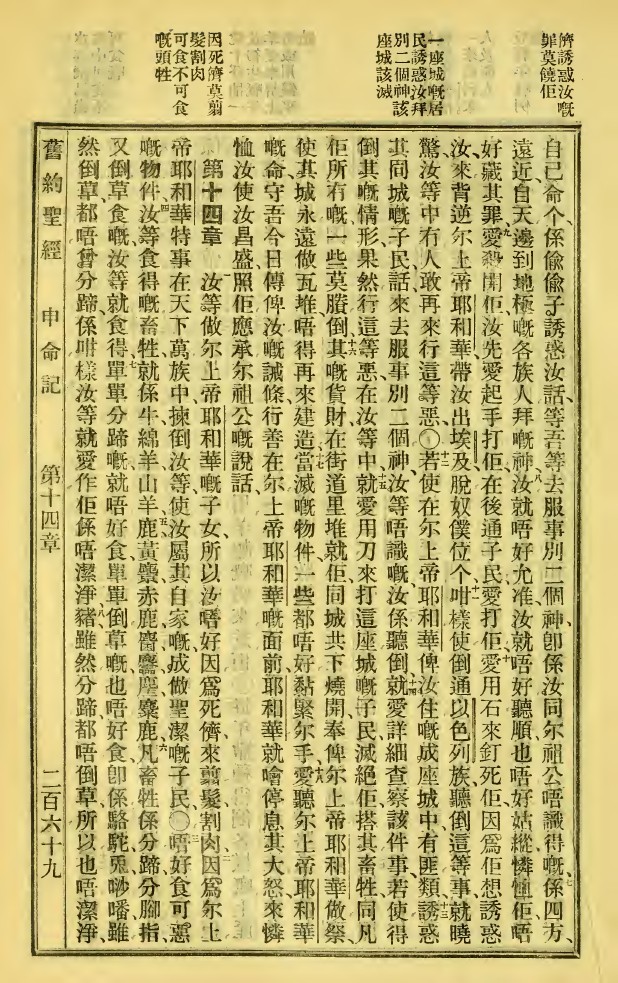 儕誘惑汝嘅
罪莫饒佢
一座城嘅居
民誘惑汝拜
別二個神該
座城該滅
因死儕莫翦
髮割肉
可食不可食
嘅頭牲
自己命个、係偸偸子誘惑汝話、等吾等去服事別二個神、卽係汝同尔祖公唔識得嘅、七係四方、
遠近、自天邊到地極嘅各族人拜嘅神、八汝就唔好允准汝就唔好聽順、也唔好姑縱憐恤佢唔
好藏其罪、九愛殺開佢、汝先愛起手打佢、在後通子民愛打佢、十愛用石來釘死佢、因爲佢想誘惑
汝來背逆尔上帝耶和華、帶汝出埃及脫奴僕位个、十一咁樣使倒通以色列族聽倒這等事、就曉
驚、汝等中有人敢再來行這等惡、〇十二若使在尔上帝耶和華俾汝住嘅成座城中、十三有匪類誘惑
其同城嘅子民話、來去服事別二個神、汝等唔識嘅、汝係聽倒、十四就愛詳細查察該件事、若使得
倒其嘅情形果然行這等惡在汝等中、十五就愛用刀來打這座城嘅子民、滅絕佢搭其畜牲、同凡
佢所有嘅、一些莫賸倒、十六其嘅貨財在街道里堆就佢、同城共下燒開奉俾尔上帝耶和華做祭、
使其城永遠做瓦堆、唔得再來建造、十七當滅嘅物件、一些都唔好黏緊尔手、十八愛聽尔上帝耶和華
嘅命、守吾今日傳俾汝嘅誡條、行善在尔上帝耶和華嘅面前、耶和華就噲停息其大怒、來憐
恤汝、使汝昌盛、照佢應承尔祖公嘅說話、
第十四章 一汝等做尔上帝耶和華嘅子女、所以汝唔好因爲死儕來翦髮割肉、二因爲尔上
帝耶和華特事在天下萬族中揀倒汝等、使汝屬其自家嘅、成做聖潔嘅子民、〇三唔好食可惡
嘅物件、四汝等食得嘅畜牲、就係牛綿羊山羊、五鹿黃麞赤鹿麕麢麈麋鹿、六凡畜牲係分蹄分腳指、
又倒草食嘅、汝等就食得、七單單分蹄嘅、就唔好食、單單倒草嘅、也唔好食、卽係駱駝兎𠹌噃、雖
然倒草、都唔曾分蹄、係咁樣汝等就愛作佢係唔潔淨、八豬雖然分蹄、都唔倒草、所以也唔潔淨、
舊約聖經 申命記 第十四章 二百六十九